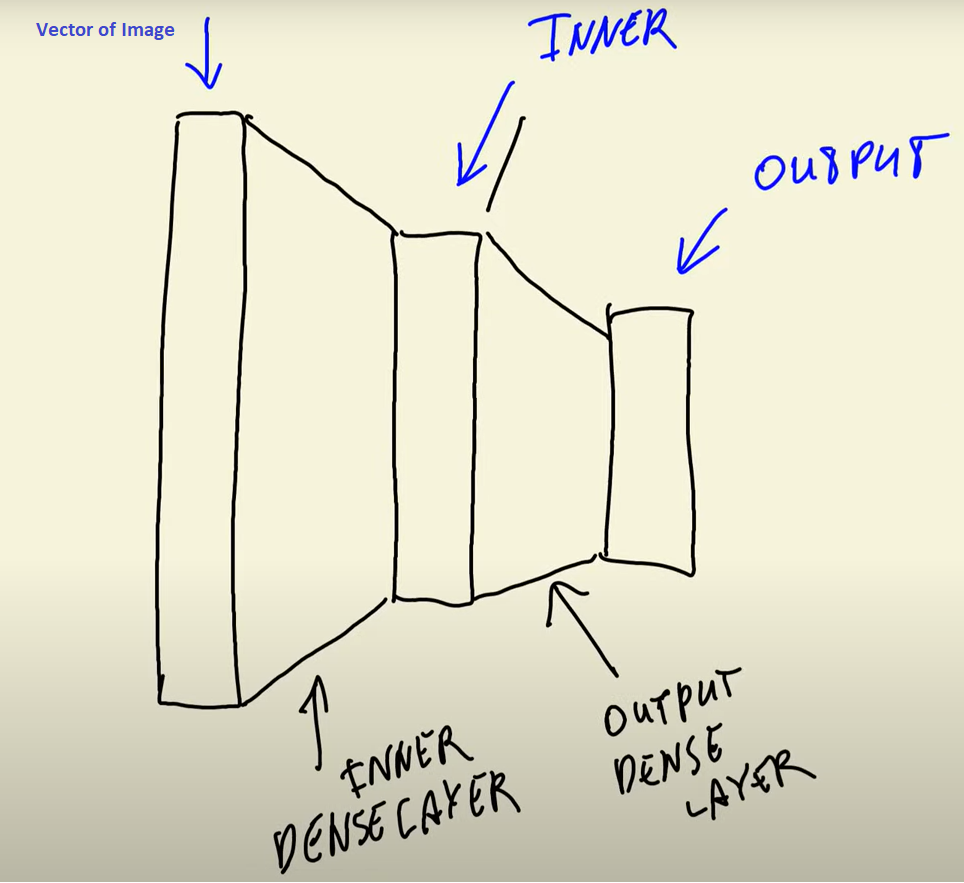 Vector of Image
INNER
OUTPUT
INNER
DENSE LAYER
OUTPUT
DENSE
LAYER